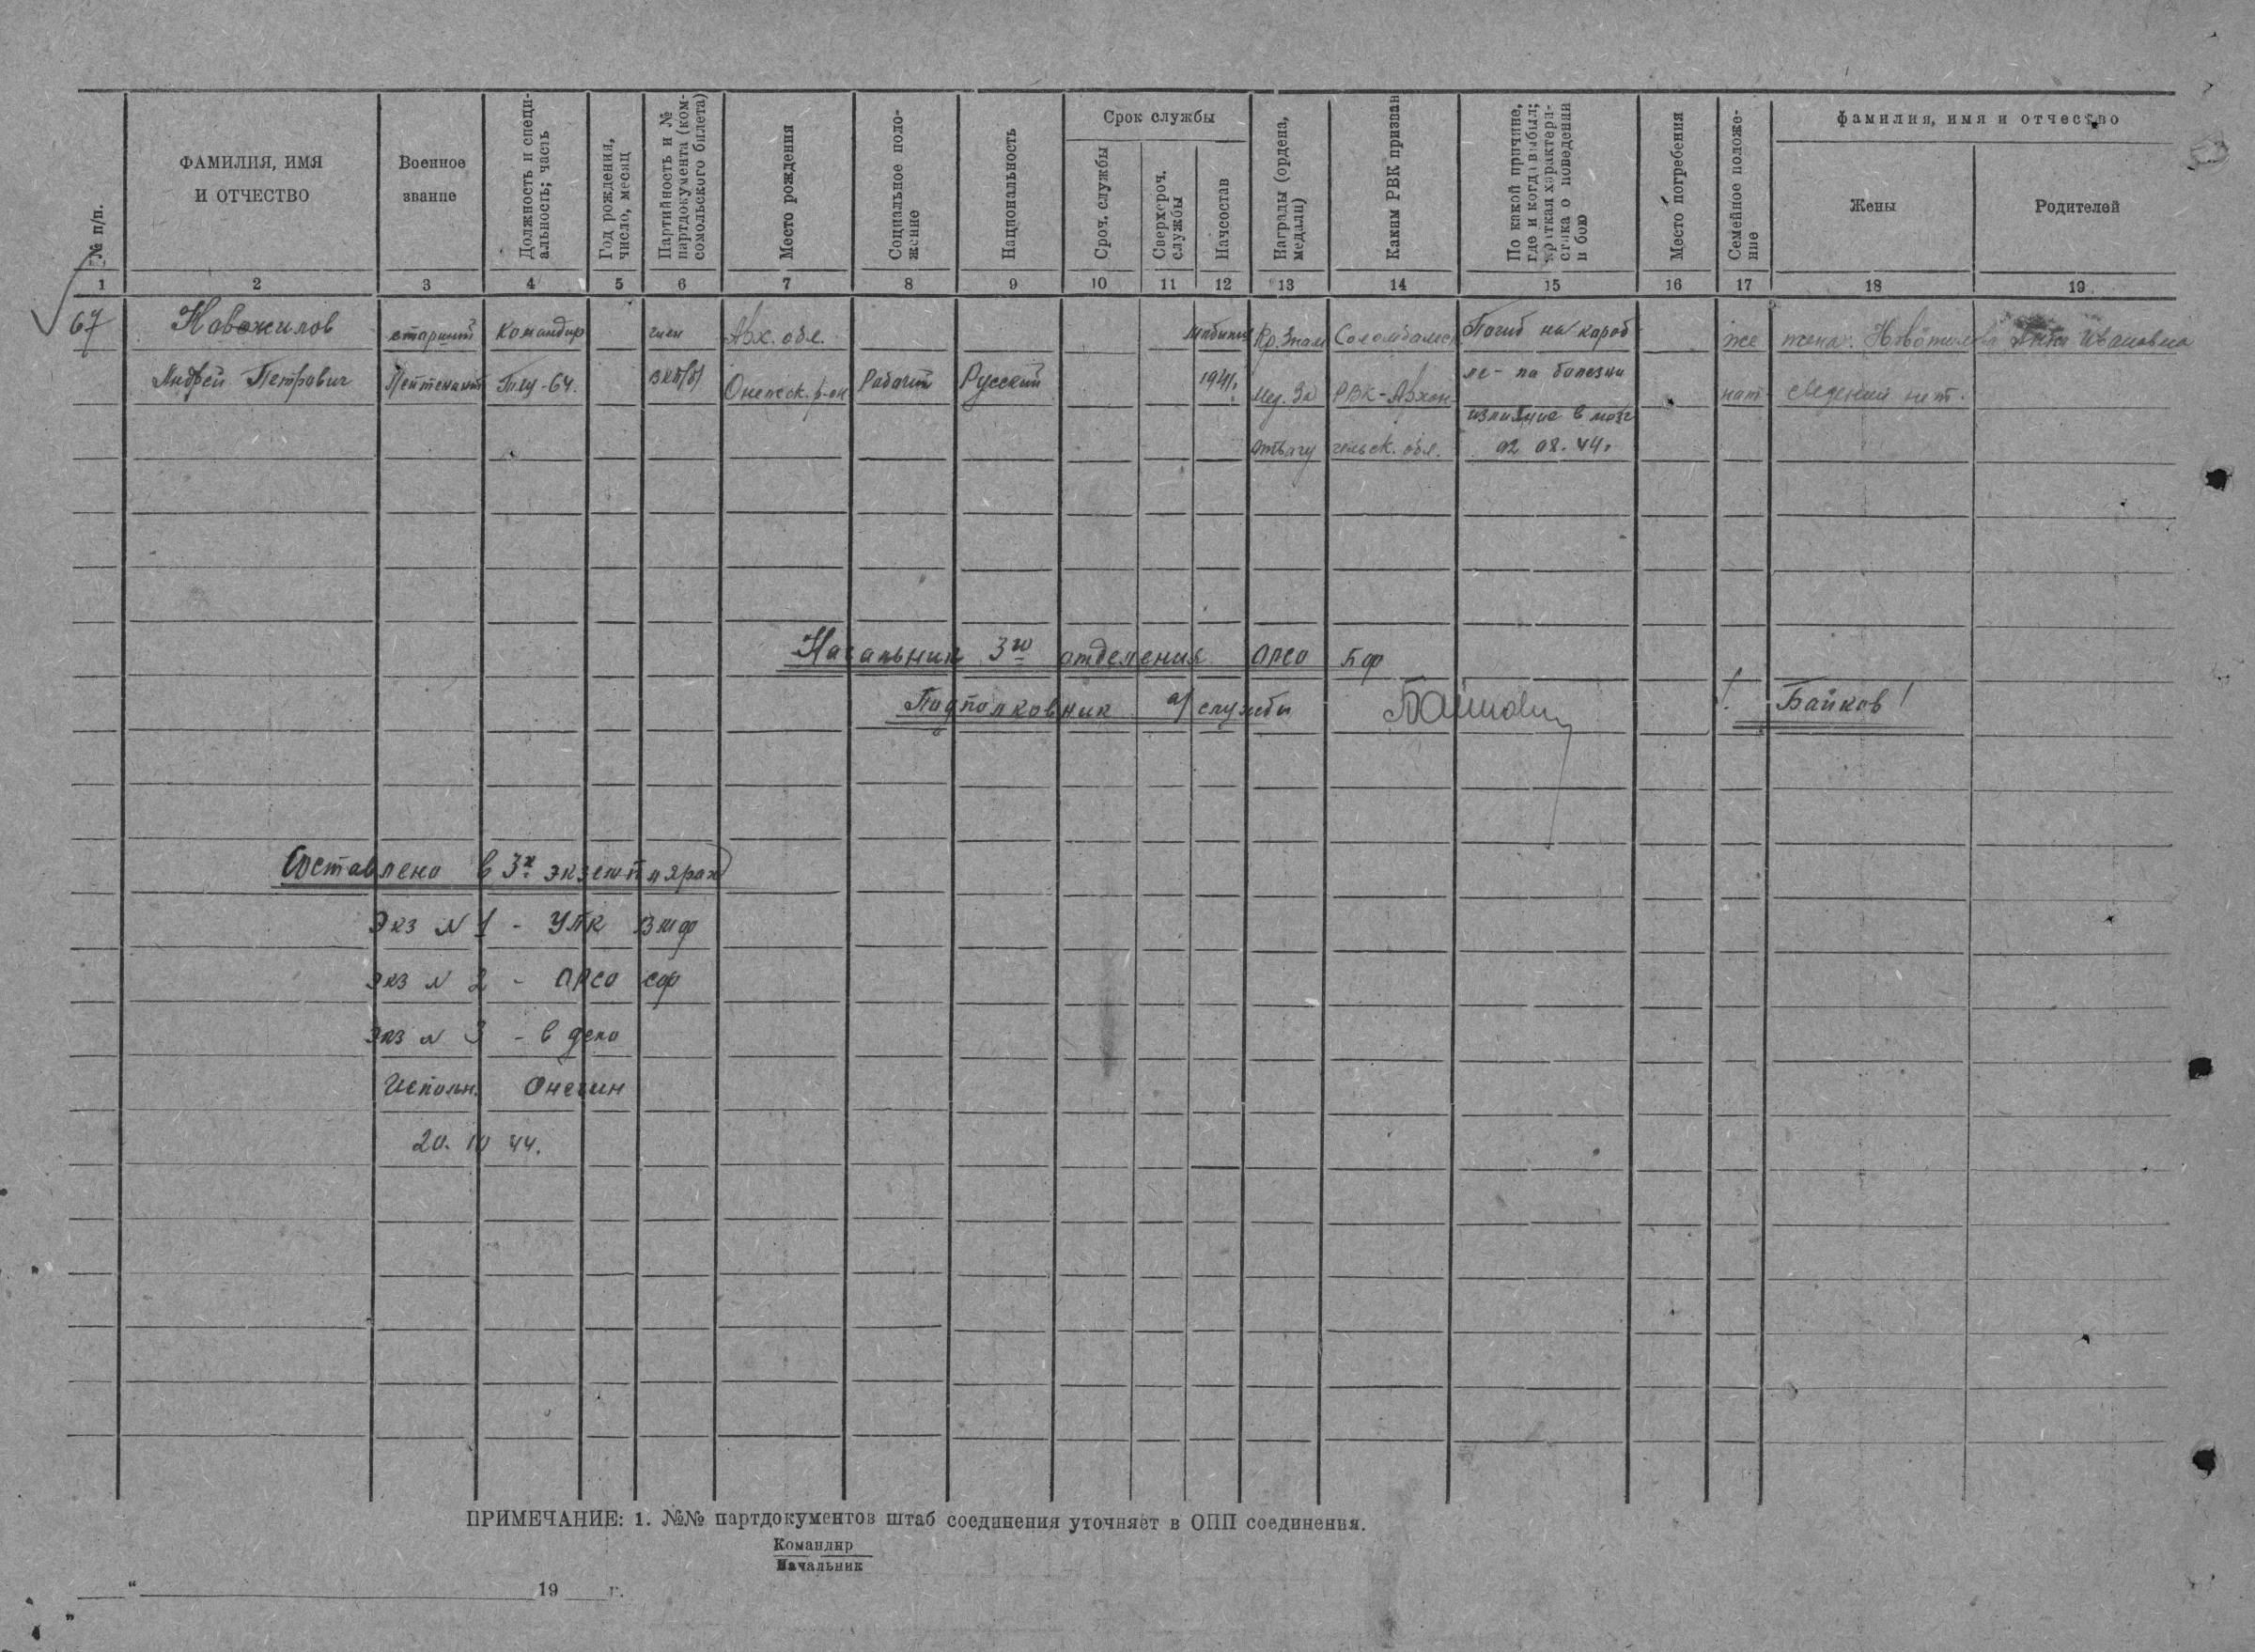 № п/п.
ФАМИЛИЯ, ИМЯ
И ОТЧЕСТВО
Военное
звание
Должность и специ-
альность; часть
Год рождения,
число, месяц
Партийность и №
партдокумента (ком-
сомольского билета)
Место рождения
Социальное поло-
жение
Национальность
Срок службы
Сроч. службы
Сверхсроч.
службы
Начсостав
Награды (ордена,
медали)
Каким РВК призван
По какой причине,
где и когда выбыл;
краткая характери-
стика о поведении
в бою
Место погребения
Семейное положе-
ние
фамилия, имя и отчество
Жены
Родителей
1 2 3 4 5 6 7 8 9 10 11 12 13 14 15 16 17 18 19
67
Новожилов
Андрей Петрович
старший
Лейтенант
Командир
Тщ-64.
член
ВКП/б/
Арх. обл.
Онежск. р-он
Рабочий
Русский
1941г.
Кр. Знам
Мед. За
отвагу
Соломбальс
РВК-Архан
гельск. обл.
Погиб на кораб
ле - по болезни
излияние в мозг
02 08. 44г.
же
нат.
жена. Новожилова Ивановна
сведений нет.
Начальник 3го отделения ОРСО БФ
Подполковник а/ службы
! Байков!
Составлено в 3х экземплярах
Экз № 1 - УПК ВМФ
Экз № 2 - ОРСО СФ
Экз № 3 - в дело
Исполн. Онегин
20. 10 44.
ПРИМЕЧАНИЕ: 1. №№ партдокументов штаб соединения уточняет в ОПП соединения.
Командир
Начальник
“ 19 г.